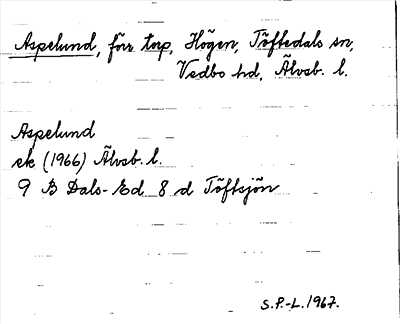 Aspelund, förr torp, Högen, Töftedals sn,
Vedbo hd, Älvsb. l.
Aspelund
ek (1966) Älvsb. l.
9 B Dals-Ed 8 d Töftsjön
S.P.-L. 1967.